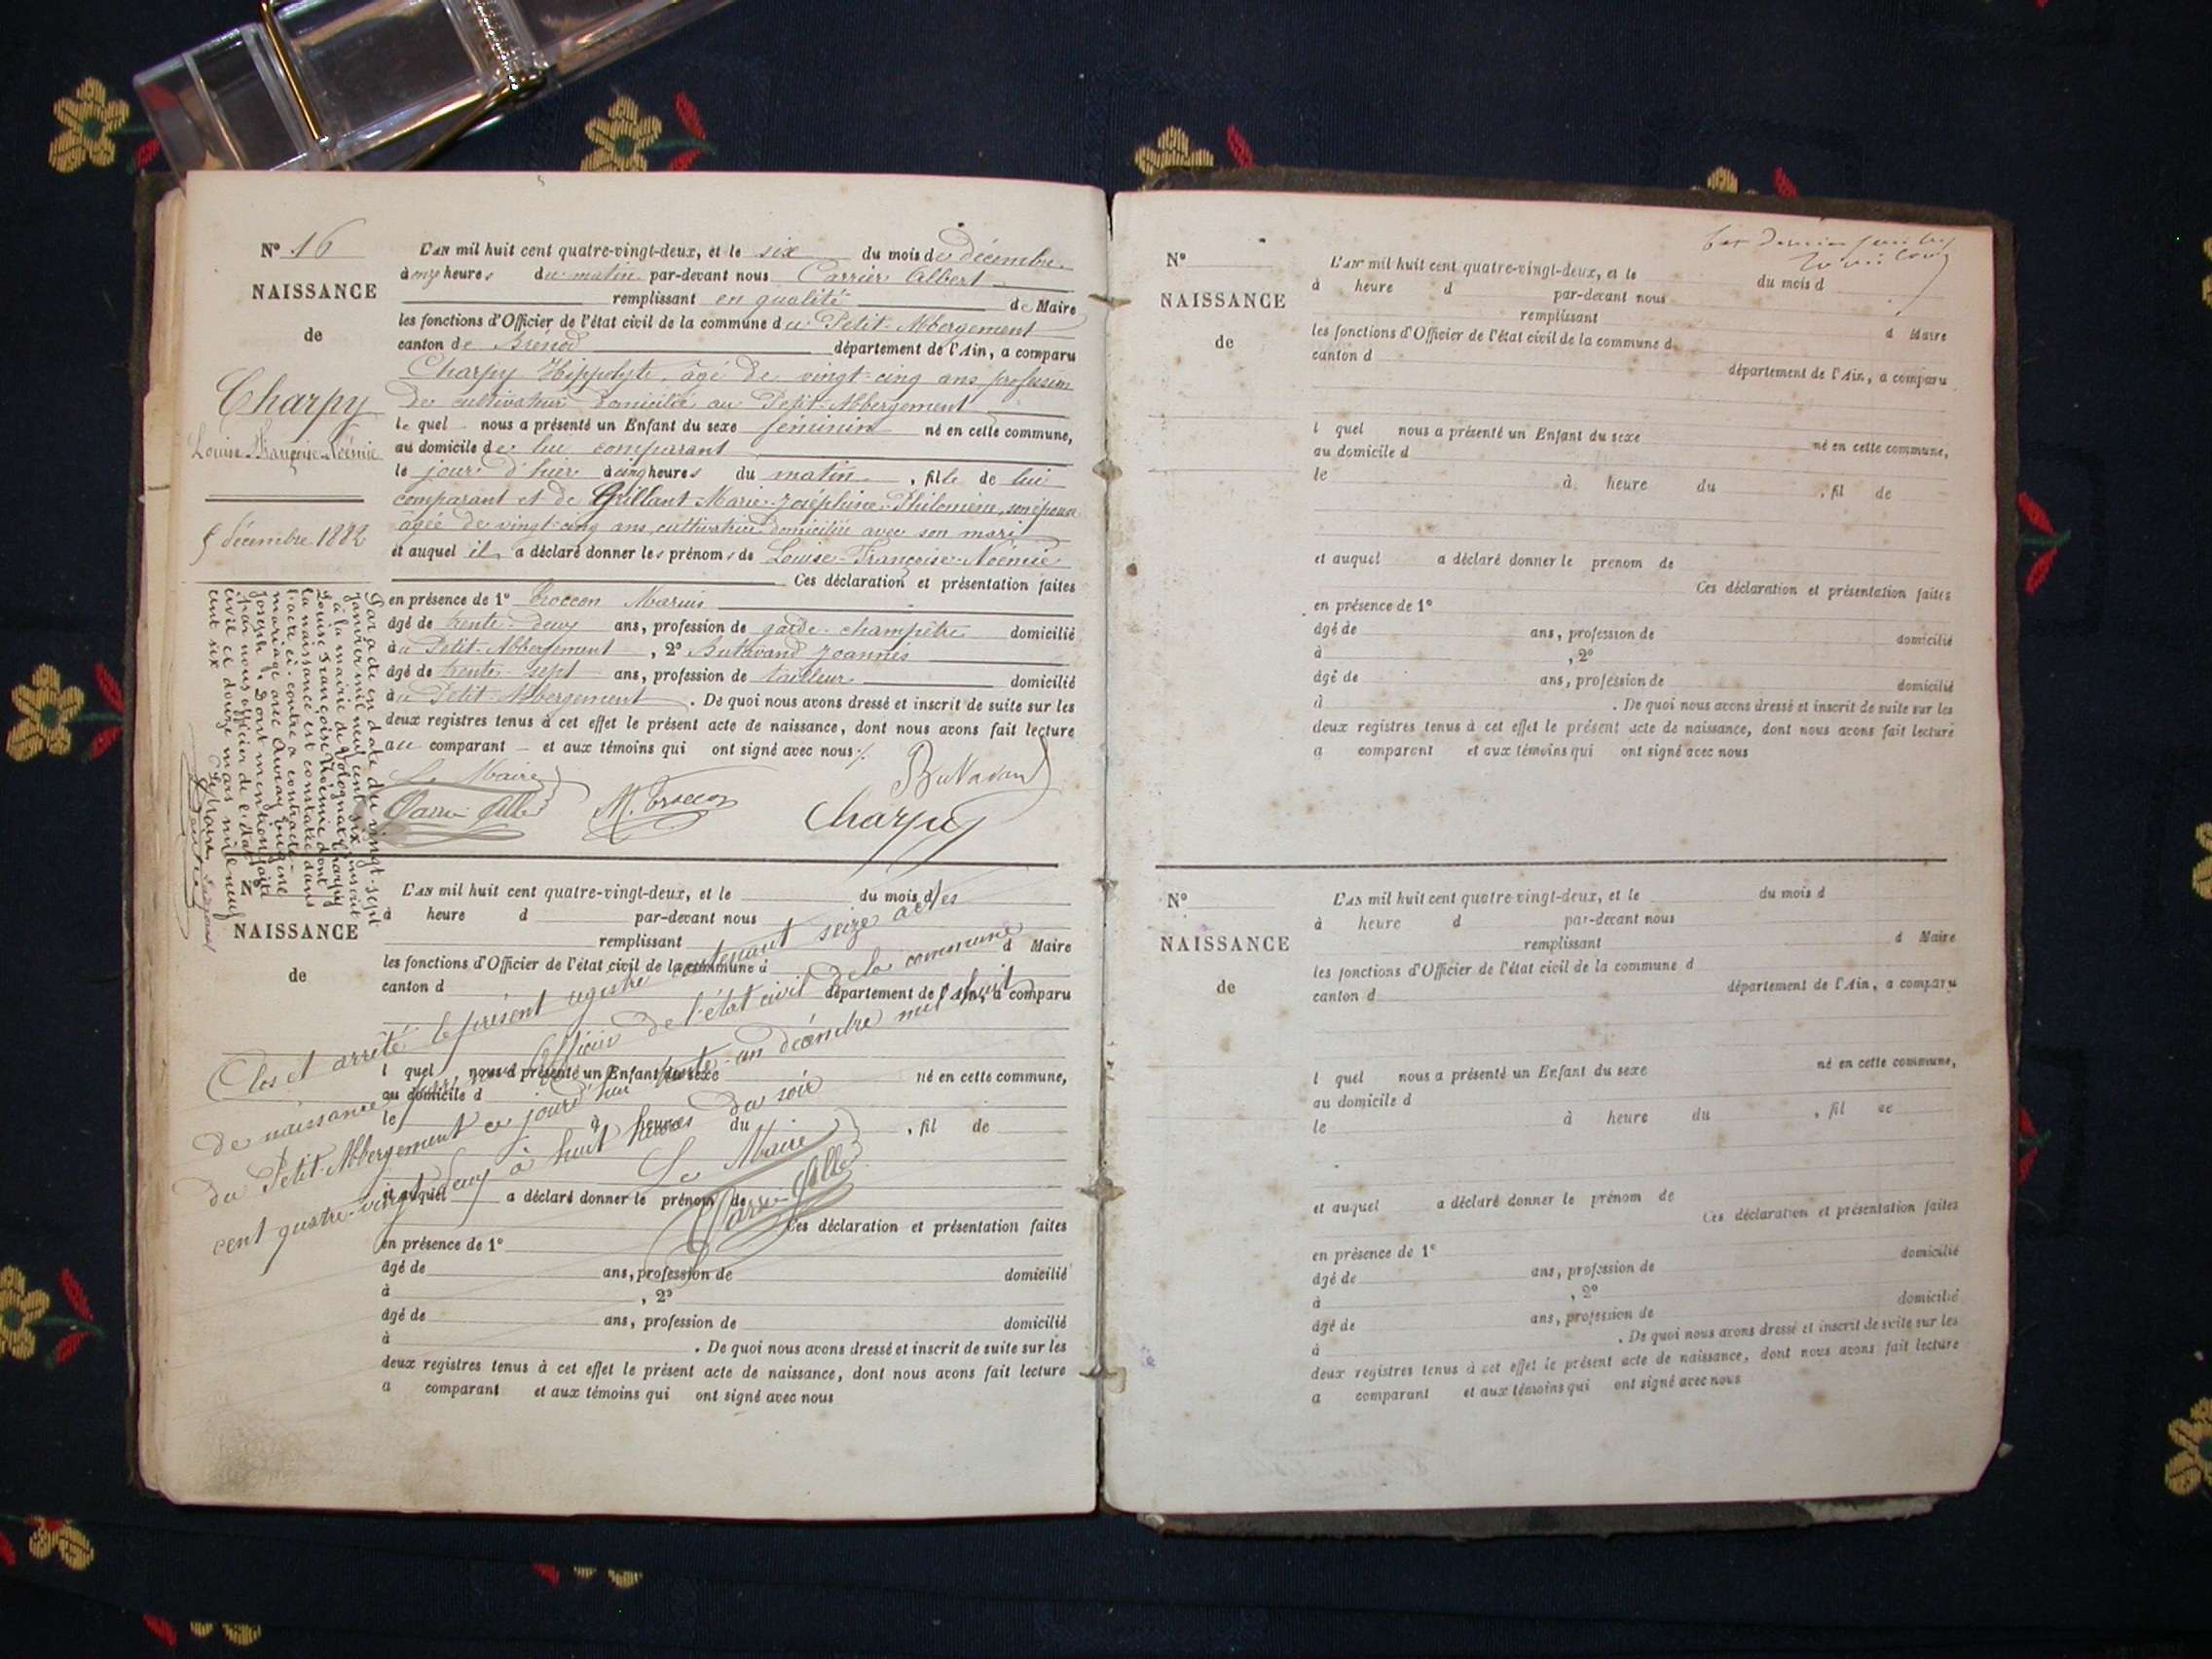 N° 16
NAISSANCE
de
Charpy
Louise Françoise Noémie
5 décembre 1882
L'AN mil huit cent quatre-vingt-deux, et le six du mois de décembre
à onze heures du matin par-devant nous Carrier Albert
remplissant en qualité de Maire
les fonctions d'Officier de l'état civil de la commune du Petit-Abbergement
canton de Brénod département de l'Ain, a comparu
Charpy Hippolyte, âgé de vingt-cinq ans profession
de cultivateur domicilié au Petit-Abbergement
lequel nous a présenté un Enfant du sexe féminin né en cette commune,
au domicile de lui comparant
le jour d'hier à cinq heures du matin, fille de lui
comparant et de Grillant Marie-Joséphine-Philomène, son épouse
âgée de vingt-cinq ans, cultivatrice domiciliée avec son mari
et auquel il a déclaré donner les prénoms de Louise-Françoise-Noémie
Ces déclaration et présentation faites
en présence de 1° Troccon Marius
âgé de trente-deux ans, profession de garde-champêtre domicilié
au Petit-Abbergement, 2° Butavand Joannis
âgé de trente-sept ans, profession de tailleur domicilié
au Petit-Abbergement. De quoi nous avons dressé et inscrit de suite sur les
deux registres tenus à cet effet le présent acte de naissance, dont nous avons fait lecture
au comparant et aux témoins qui ont signé avec nous
Le Maire
Carrier Albt
M. Troccon
Butavand
Charpy
Par acte en date du vingt-sept
janvier mil neuf cent six, inscrit
à la mairie de Volognat, Charpy
Louise Françoise Noémie dont
la naissance est constatée dans
l'acte ci-contre a contracté
mariage avec Auray Eugène
Joseph, dont mention faite
par nous officier de l'état
civil ce douze mars mil neuf
cent six
Le Maire
NAISSANCE
de
L'AN mil huit cent quatre-vingt-deux, et le du mois d
à heure d par-devant nous
remplissant d Maire
les fonctions d'Officier de l'état civil de la commune d
canton d département de l'Ain, a comparu
l quel nous a présenté un Enfant du sexe né en cette commune,
au domicile d
le à heure du , fil de
et auquel a déclaré donner le prénom de
Ces déclaration et présentation faites
en présence de 1°
âgé de ans, profession de domicilié
à , 2°
âgé de ans, profession de domicilié
à . De quoi nous avons dressé et inscrit de suite sur les
deux registres tenus à cet effet le présent acte de naissance, dont nous avons fait lecture
a comparant et aux témoins qui ont signé avec nous
Clos et arrêté le présent registre contenant seize actes
de naissance par nous Officier de l'état civil de la commune
du Petit-Abbergement ce jourd'hui trente-un décembre mil huit
cent quatre-vingt-deux à huit heures du soir
Le Maire
Carrier Albt
N°
NAISSANCE
de
L'AN mil huit cent quatre-vingt-deux, et le du mois d
à heure d par-devant nous
remplissant d Maire
les fonctions d'Officier de l'état civil de la commune d
canton d département de l'Ain, a comparu
l quel nous a présenté un Enfant du sexe né en cette commune,
au domicile d
le à heure du , fil de
et auquel a déclaré donner le prenom de
Ces déclaration et présentation faites
en présence de 1°
âgé de ans, profession de domicilié
à , 2°
âgé de ans, profession de domicilié
à . De quoi nous avons dressé et inscrit de suite sur les
deux registres tenus à cet effet le présent acte de naissance, dont nous avons fait lecture
a comparant et aux témoins qui ont signé avec nous
N°
NAISSANCE
de
L'AN mil huit cent quatre-vingt-deux, et le du mois d
à heure d par-devant nous
remplissant d Maire
les fonctions d'Officier de l'état civil de la commune d
canton d département de l'Ain, a comparu
l quel nous a présenté un Enfant du sexe né en cette commune,
au domicile d
le à heure du , fil de
et auquel a déclaré donner le prénom de
Ces déclaration et présentation faites
en présence de 1°
âgé de ans, profession de domicilié
à , 2°
âgé de ans, profession de domicilié
à . De quoi nous avons dressé et inscrit de suite sur les
deux registres tenus à cet effet le présent acte de naissance, dont nous avons fait lecture
a comparant et aux témoins qui ont signé avec nous